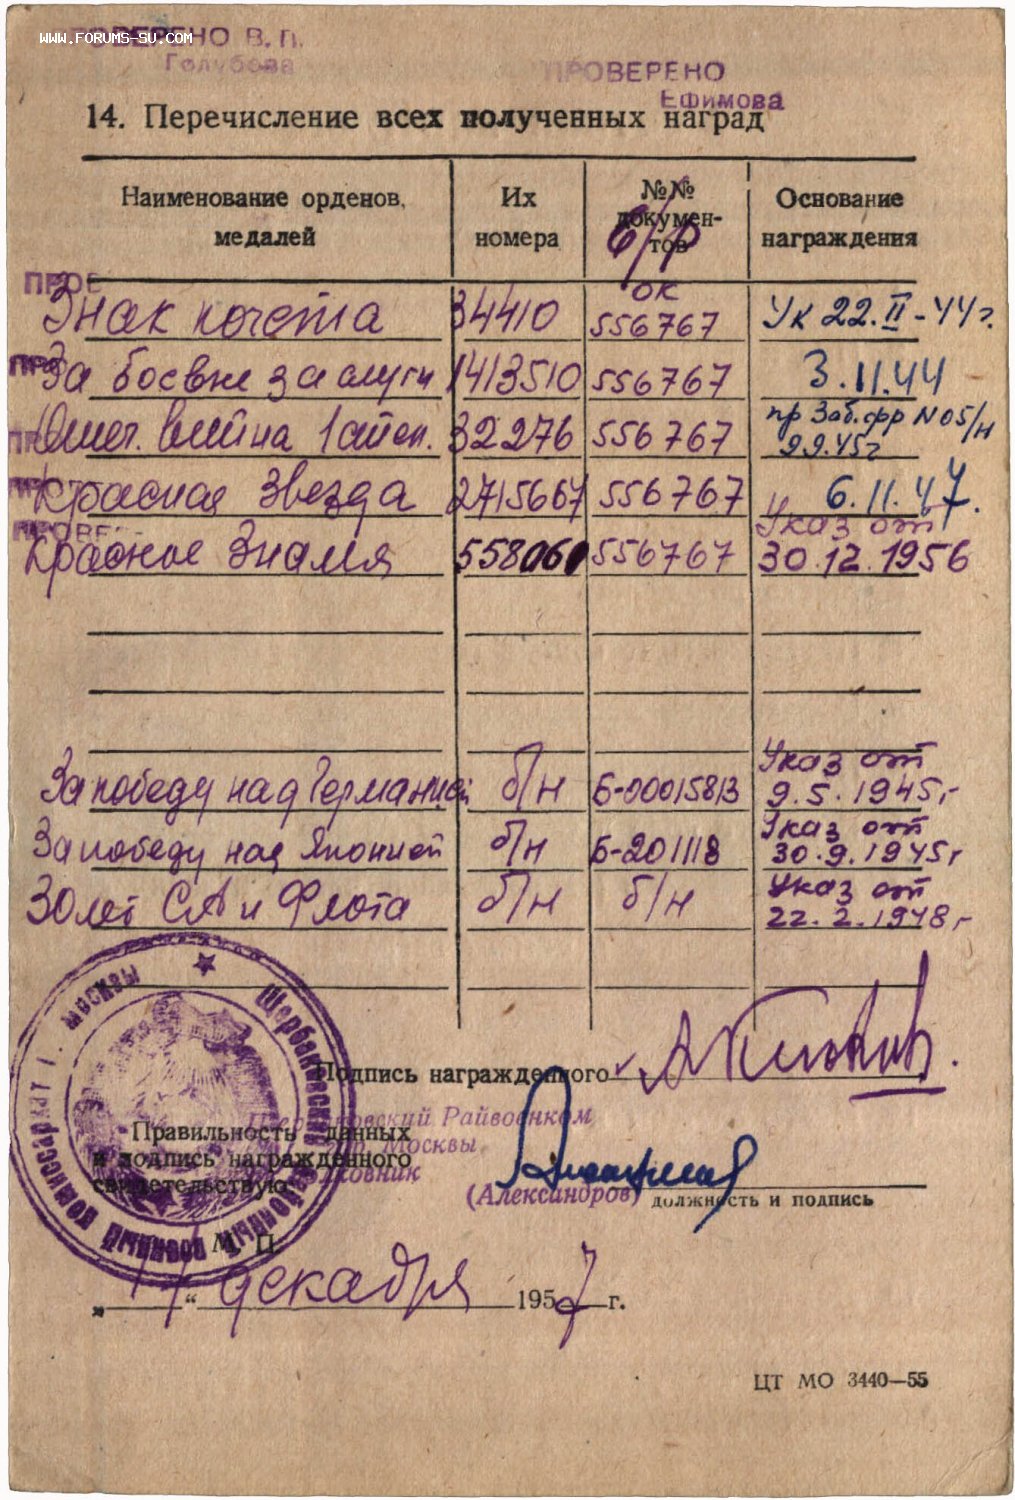 WWW.FORUMS-SU.COM
ПРОВЕРЕНО В. П.
Голубова
ПРОВЕРЕНО
Ефимова
14. Перечисление всех полученных наград
Наименование орденов, медалей
Их номера
№№ докумен-тов
Основание награждения
б/р
ок
Знак почета 34410 556767 Ук 22.II-44г.
За боевые заслуги 1413510 556767 3.11.44
Отеч. война 1 степ. 32276 556767 пр Заб.фр N 05/н 9.9.45г
Красная Звезда 2715667 556767 6.11.47.
Красное Знамя 558060 556767 Указ от 30.12.1956
За победу над Германией б/н Б-00015813 Указ от 9.5.1945г
За победу над Японией б/н Б-201118 Указ от 30.9.1945г
30 лет СА и Флота б/н б/н Указ от 22.2.1948г
Подпись награжденного
Щербаковский Райвоенком
гор. Москвы
Правильность данных
и подпись награжденного
свидетельствую:
Полковник
(Александров)
должность и подпись
Щербаковский районный военный комиссариат г. Москвы
М. П.
„17“ декабря 1957 г.
ЦТ МО 3440—55